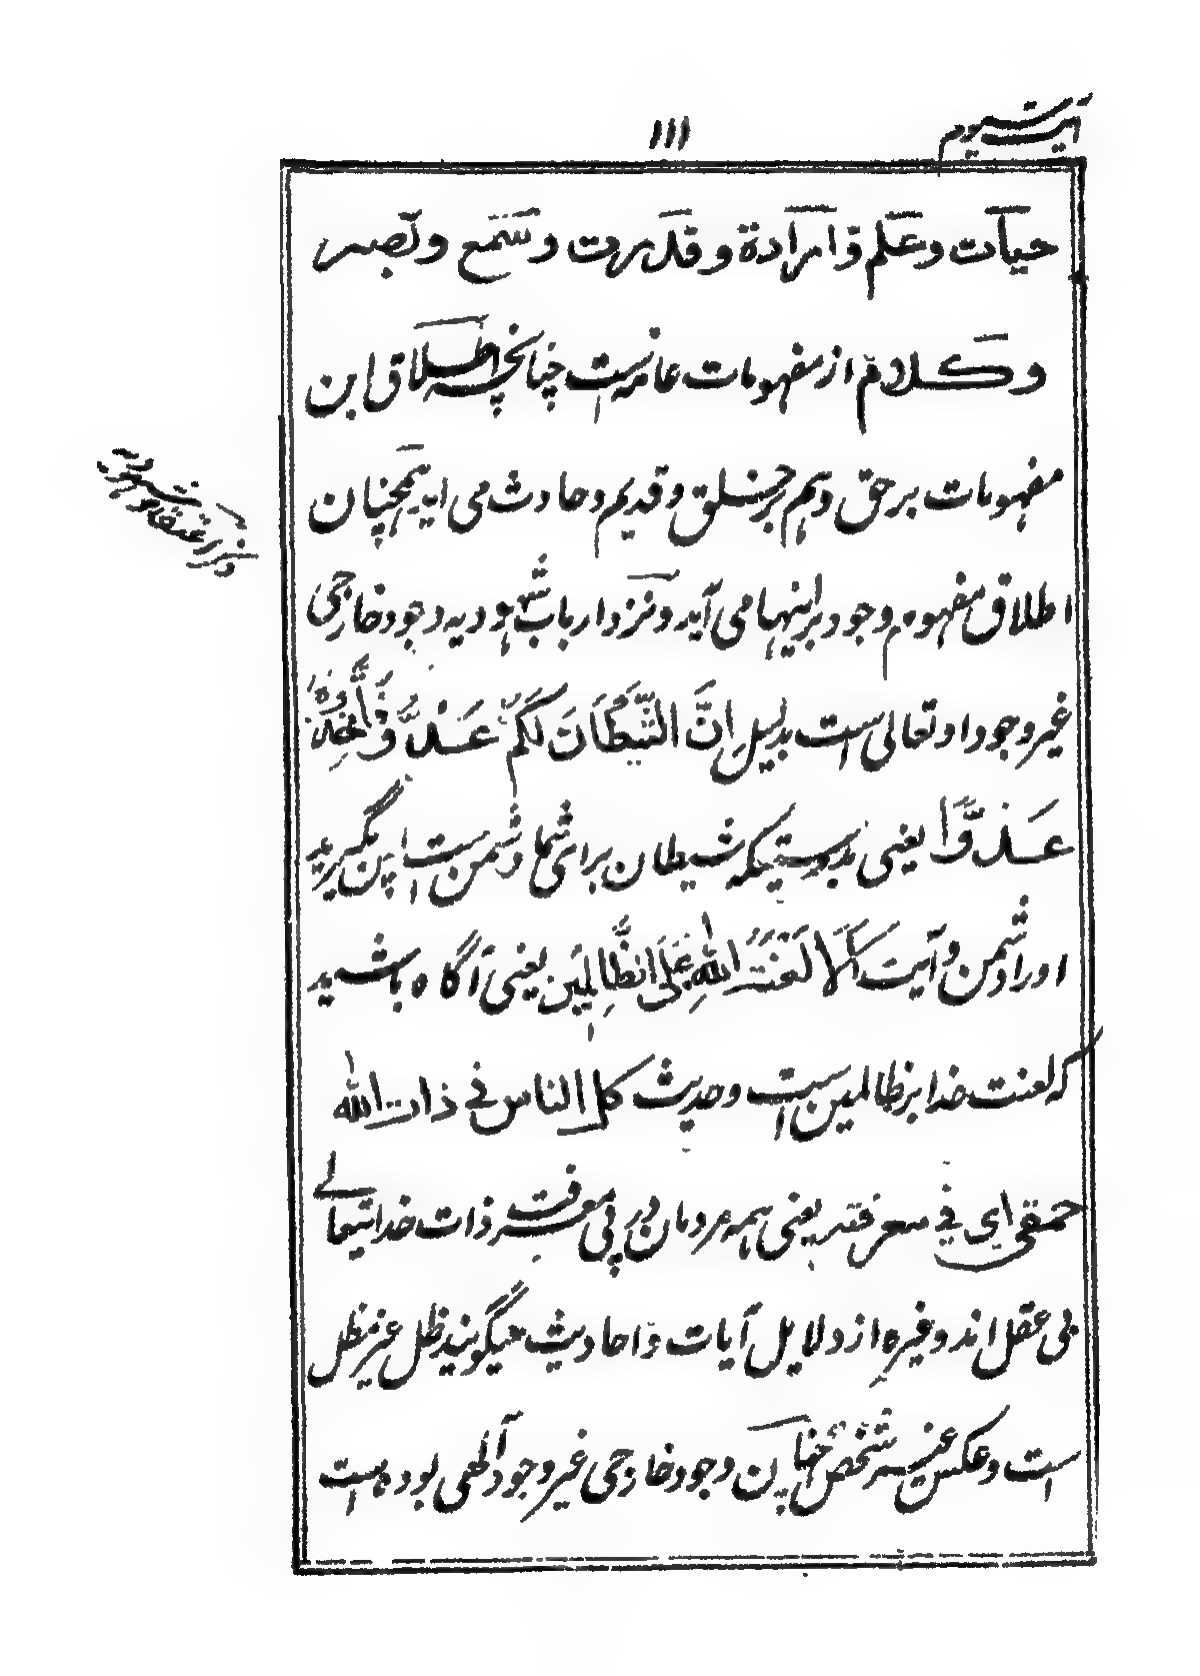 آیت سیوم
۱۱۱
حیات وعلم و ارادة و قدرت و سمع و بصر
و کلام از مفهومات عامه است چنانچه اطلاق این
مفهومات بر حق وهم بر خلق وقدیم وحادث می اید همچنان
اطلاق مفهوم وجود بر اینها می آید ونزد ارباب شهودیه وجود خارجی
غیر وجود او تعالی است بدلیل اِنَّ الشَّیْطَانَ لَکُمْ عَدُوٌّ فَاتَّخِذُوْهُ
عَدُوًّا یعنی بدرستیکه شیطان برای شما دشمن است پس بگیرید
اورا دشمن و آیت اَلَا لَعْنَتُ اللهِ عَلَی الظَّالِمِین یعنی آگاه باشید
که لعنت خدا بر ظالمین است وحدیث کل الناس فی ذات الله
حمقی ای فی معرفته یعنی همه مردمان در پی معرفت ذات خدایتعالے
بی عقل اند وغیره از دلایل آیات و احادیث میگویند ظل غیر مظل
است وعکس غیر شخص چنان وجود خارجی غیر وجود آلهی بوده است